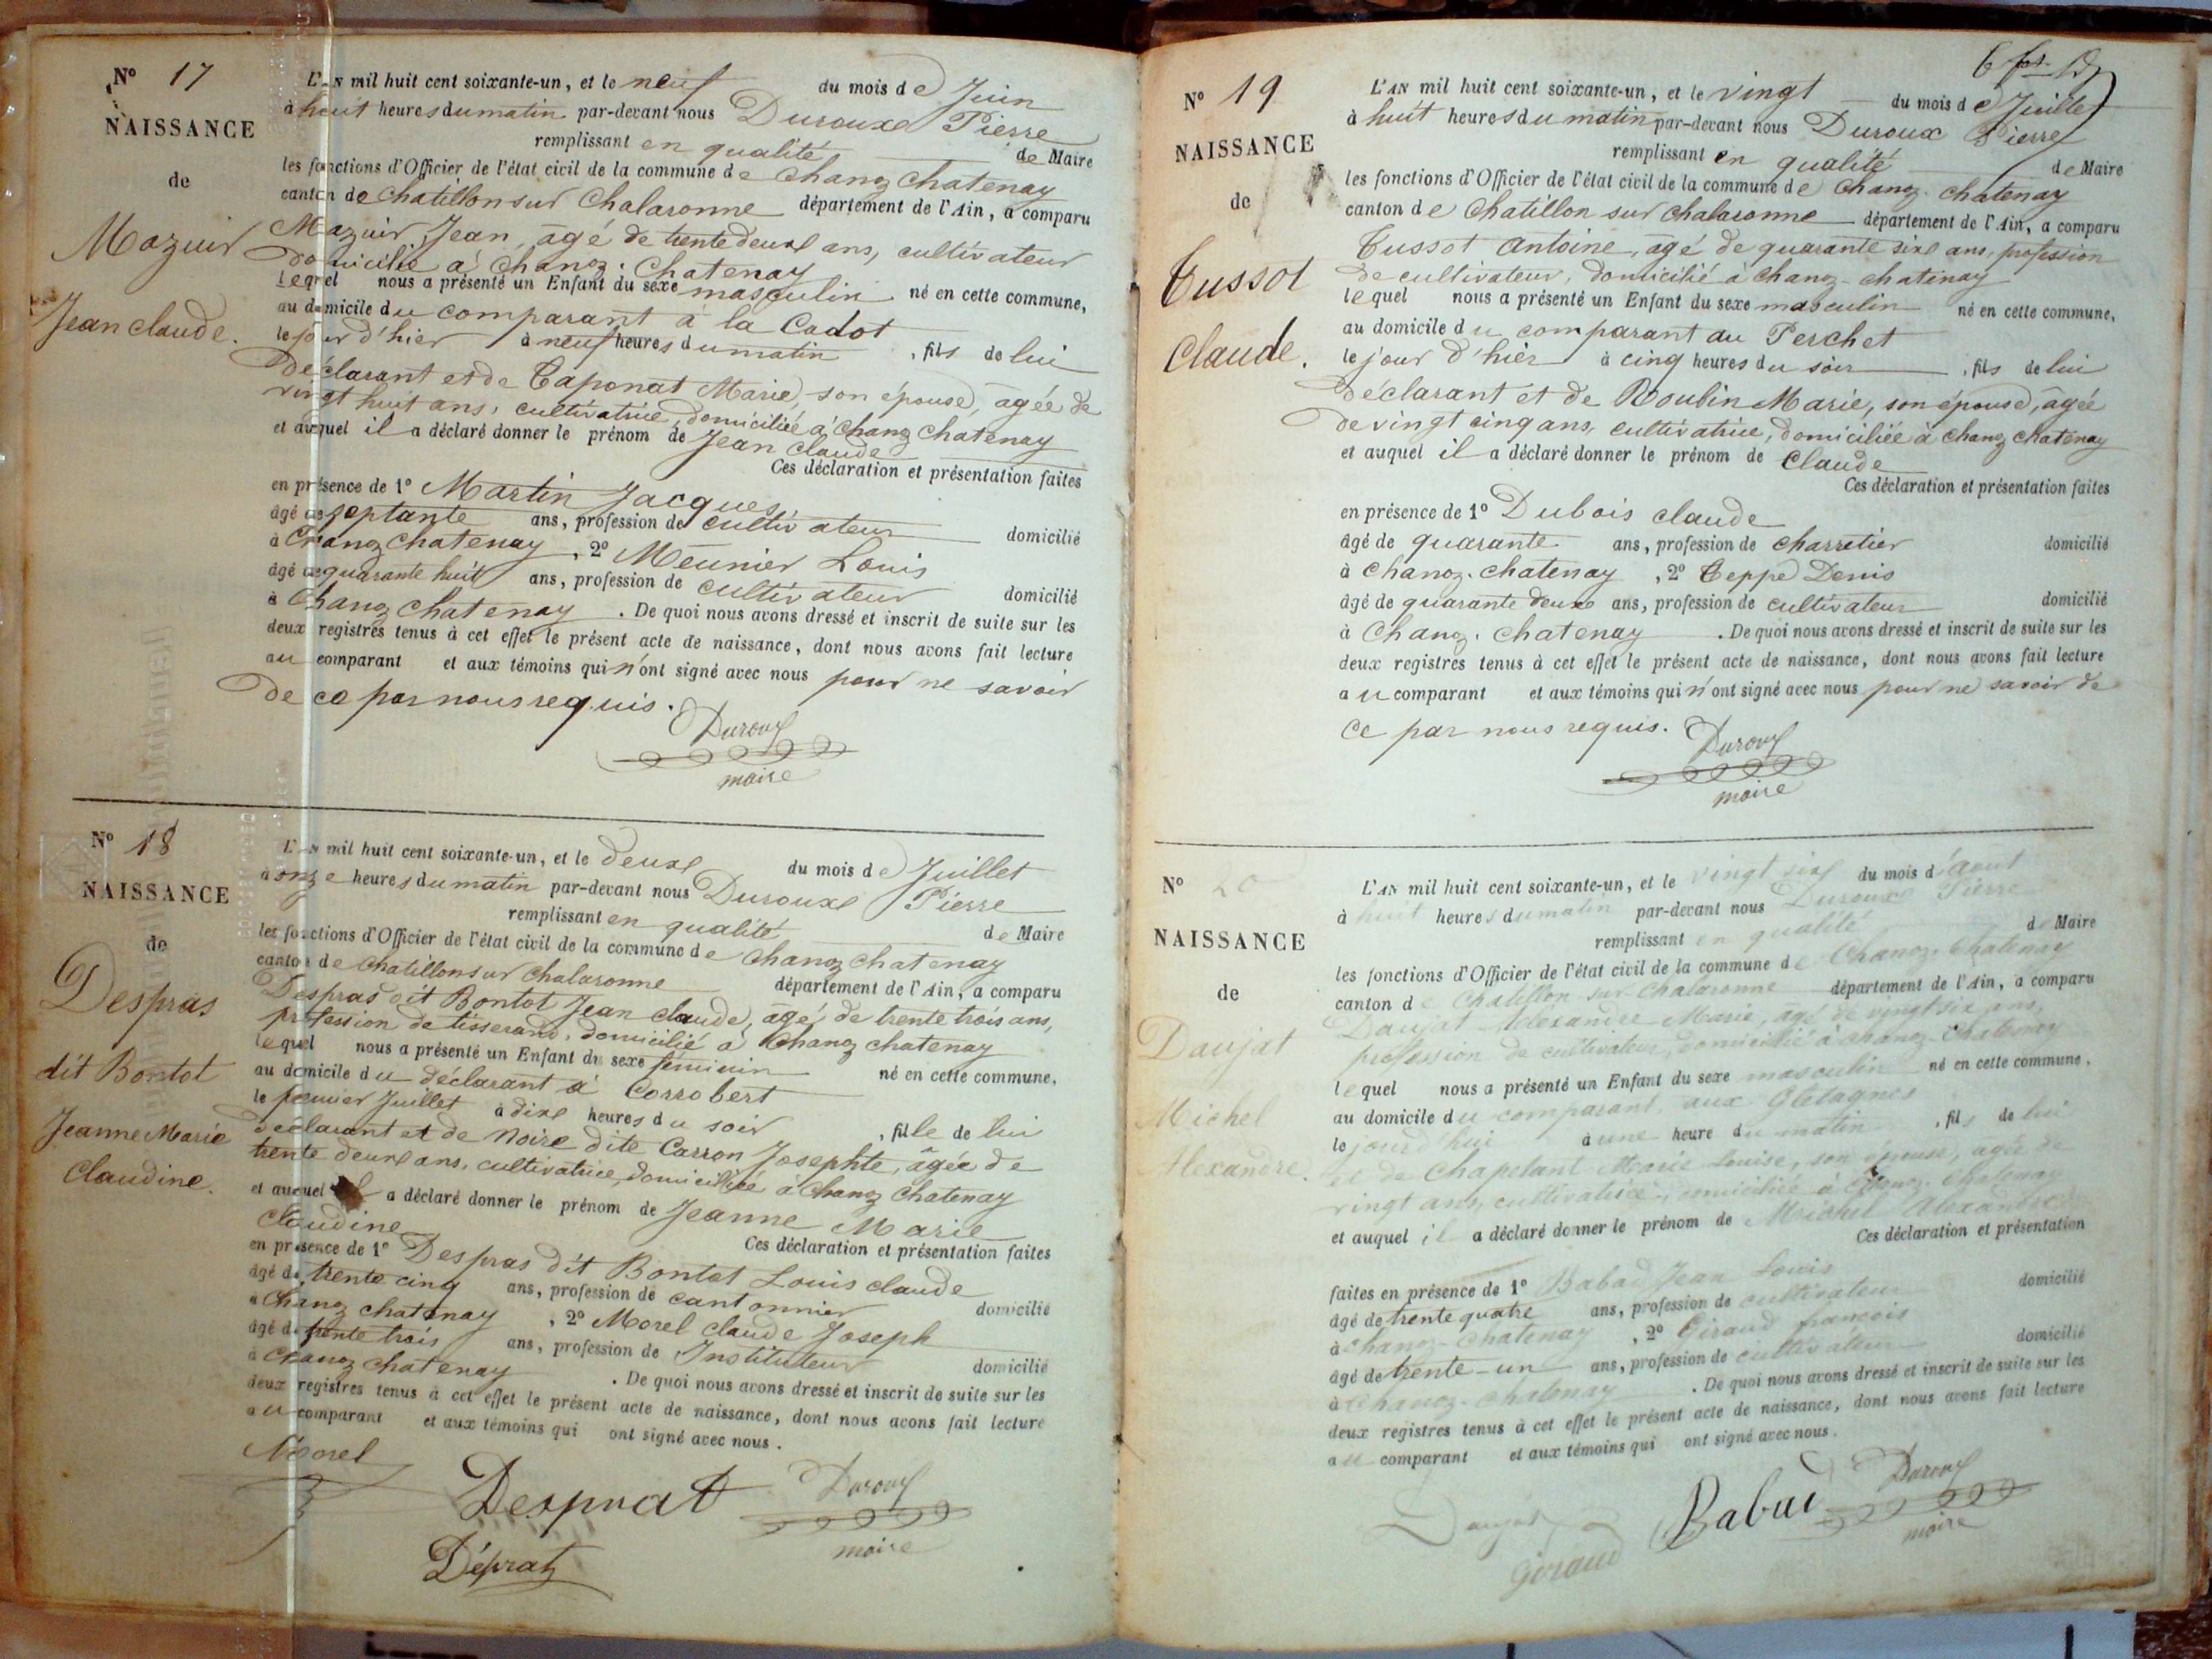 N° 17
NAISSANCE
de
Mazuir
Jean claude.
L'AN mil huit cent soixante-un, et le neuf du mois de Juin
à huit heures du matin par-devant nous Duroux Pierre
remplissant en qualité de Maire
les fonctions d'Officier de l'état civil de la commune de Chanoz Chatenay
canton de Chatillon sur Chalaronne département de l'Ain, a comparu
Mazuir Jean, âgé de trente deux ans, cultivateur
domicilié à Chanoz. Chatenay
Lequel nous a présenté un Enfant du sexe masculin né en cette commune,
au domicile du comparant à la Cadot
le jour d'hier à neuf heures du matin, fils de lui
Déclarant et de Taponat Marie, son épouse, âgée de
vingt huit ans, cultivatrice, domiciliée à Chanoz Chatenay
et auquel il a déclaré donner le prénom de Jean Claude
Ces déclaration et présentation faites
en présence de 1° Martin Jacques
âgé de septante ans, profession de cultivateur domicilié
à Chanoz Chatenay, 2° Meunier Louis
âgé de quarante huit ans, profession de cultivateur domicilié
à Chanoz Chatenay. De quoi nous avons dressé et inscrit de suite sur les
deux registres tenus à cet effet le présent acte de naissance, dont nous avons fait lecture
au comparant et aux témoins qui n'ont signé avec nous pour ne savoir
de ce par nous requis.
Duroux
maire
N° 18
NAISSANCE
de
Despras
dit Bontot
Jeanne Marie
Claudine.
L'AN mil huit cent soixante-un, et le deux du mois de Juillet
à onze heures du matin par-devant nous Duroux Pierre
remplissant en qualité de Maire
les fonctions d'Officier de l'état civil de la commune de Chanoz Chatenay
canton de Chatillon sur Chalaronne département de l'Ain, a comparu
Despras dit Bontot Jean Claude, âgé de trente trois ans,
profession de tisserand, domicilié à Chanoz Chatenay
lequel nous a présenté un Enfant du sexe féminin né en cette commune,
au domicile du déclarant à Corrobert
le premier Juillet à dix heures du soir, fille de lui
déclarant et de Noire dite Carron Josephte, âgée de
trente deux ans, cultivatrice, domiciliée à Chanoz Chatenay
et auquel a déclaré donner le prénom de Jeanne Marie
Claudine
Ces déclaration et présentation faites
en présence de 1° Despras dit Bontot Louis claude
âgé de trente cinq ans, profession de cantonnier domicilié
à Chanoz Chatenay, 2° Morel Claude Joseph
âgé de trente trois ans, profession de Instituteur domicilié
à Chanoz Chatenay. De quoi nous avons dressé et inscrit de suite sur les
deux registres tenus à cet effet le présent acte de naissance, dont nous avons fait lecture
au comparant et aux témoins qui ont signé avec nous.
Morel
Desprat
Duroux
maire
Déprat
N° 19
NAISSANCE
de
Tussot
Claude.
L'AN mil huit cent soixante-un, et le vingt du mois de Juillet
à huit heures du matin par-devant nous Duroux Pierre
remplissant en qualité de Maire
les fonctions d'Officier de l'état civil de la commune de Chanoz. Chatenay
canton de Chatillon sur Chalaronne département de l'Ain, a comparu
Tussot Antoine, âgé de quarante six ans, profession
de cultivateur, domicilié à Chanoz-Chatenay
lequel nous a présenté un Enfant du sexe masculin né en cette commune,
au domicile du comparant au Perchet
le jour d'hier à cinq heures du soir, fils de lui
déclarant et de Roubin Marie, son épouse, âgée
de vingt cinq ans, cultivatrice, domiciliée à Chanoz Chatenay
et auquel il a déclaré donner le prénom de Claude
Ces déclaration et présentation faites
en présence de 1° Dubois Claude
âgé de quarante ans, profession de charretier domicilié
à Chanoz. Chatenay, 2° Teppe Denis
âgé de quarante deux ans, profession de cultivateur domicilié
à Chanoz. Chatenay. De quoi nous avons dressé et inscrit de suite sur les
deux registres tenus à cet effet le présent acte de naissance, dont nous avons fait lecture
au comparant et aux témoins qui n'ont signé avec nous pour ne savoir de
ce par nous requis.
Duroux
maire
N° 20
NAISSANCE
de
Daujat
Michel
Alexandre.
L'AN mil huit cent soixante-un, et le vingt six du mois d'août
à huit heures du matin par-devant nous Duroux Pierre
remplissant en qualité de Maire
les fonctions d'Officier de l'état civil de la commune de Chanoz. Chatenay
canton de Chatillon sur Chalaronne département de l'Ain, a comparu
Daujat Alexandre Marie, âgé de vingt six ans,
profession de cultivateur, domicilié à Chanoz-Chatenay
lequel nous a présenté un Enfant du sexe masculin né en cette commune,
au domicile du comparant, aux Gletagnes
le jourd'hui à une heure du matin, fils de lui
et de Chapelant Marie Louise, son épouse, âgée de
vingt ans, cultivatrice, domiciliée à Chanoz. Chatenay
et auquel il a déclaré donner le prénom de Michel Alexandre
Ces déclaration et présentation
faites en présence de 1° Babad Jean Louis
âgé de trente quatre ans, profession de cultivateur domicilié
à Chanoz-Chatenay, 2° Giraud françois
âgé de trente-un ans, profession de cultivateur domicilié
à Chanoz-Chatenay. De quoi nous avons dressé et inscrit de suite sur les
deux registres tenus à cet effet le présent acte de naissance, dont nous avons fait lecture
au comparant et aux témoins qui ont signé avec nous.
Daujat
Giraud
Babad
Duroux
maire